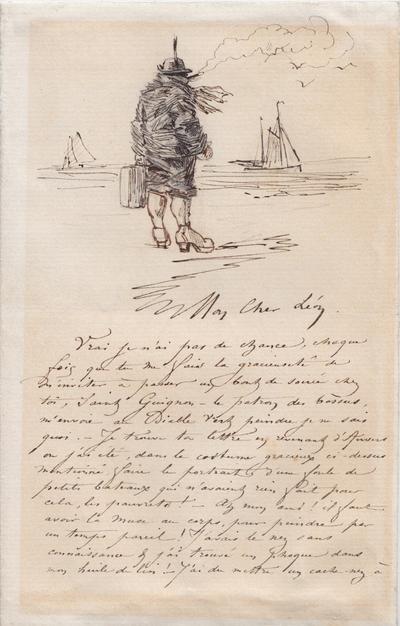 Mon Cher Léon
Vrai je n'ai pas de chance, chaque
fois que tu me fais la gracieuseté de
m'inviter à passer un bout de soirée chez
toi, Saint Guignon - le patron des bossus,
m'envoie au Diable Vert peindre je ne sais
quoi. - Je trouve ton lettre en revenant d'Anvers
où j'ai été, dans le costume gracieux ci-dessus
faire le portrait d'une foule de
petits bateaux qui n'avaient rien fait pour
cela, les pauvrets! - Ah mon ami! il faut
avoir la muse au corps, pour peindre par
un temps pareil! J'avais le nez sans
connaissance & j'ai trouvé un phoque dans
mon huile de lin! - J'ai du mettre un cache-nez à